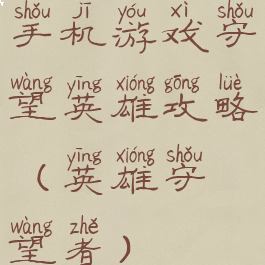 shǒu jī yóu xì shǒu
手机游戏守
wàng yīng xióng gōng lüè
望英雄攻略
yīng xióng shǒu
（英雄守
wàng zhě
望者）